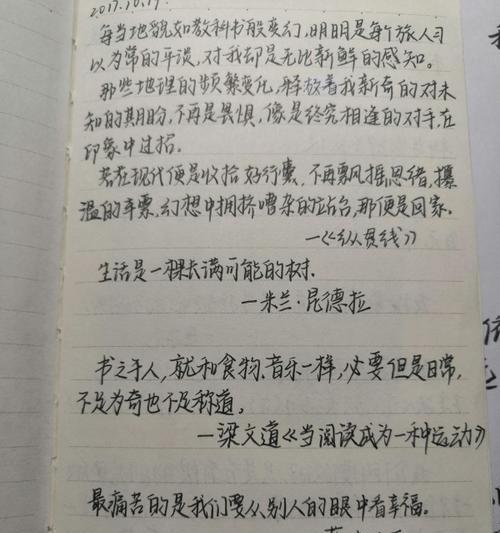 2017.10.19
每当地貌如教科书般变幻,明明是每个旅人司
以为常的平谈,对我却是无比新鲜的感知。
那些地理的频繁变化,释放着我新奇的对未
知的期盼,不再是畏惧,像是终究相逢的对手在
印象中过招。
若在现代便是收拾好行囊,不再飘摇思绪,攥
温的车票,幻想中拥挤嘈杂的站台,那便是回家。
—《纵贯线》
生活是一棵长满可能的树.
—米兰·昆德拉
书之于人,就和食物、音乐一样,必要但是日常,
不足为奇也不足称道。
—梁文道《当阅读成为一种运动》
最痛苦的是我们要从别人的眼中看幸福。